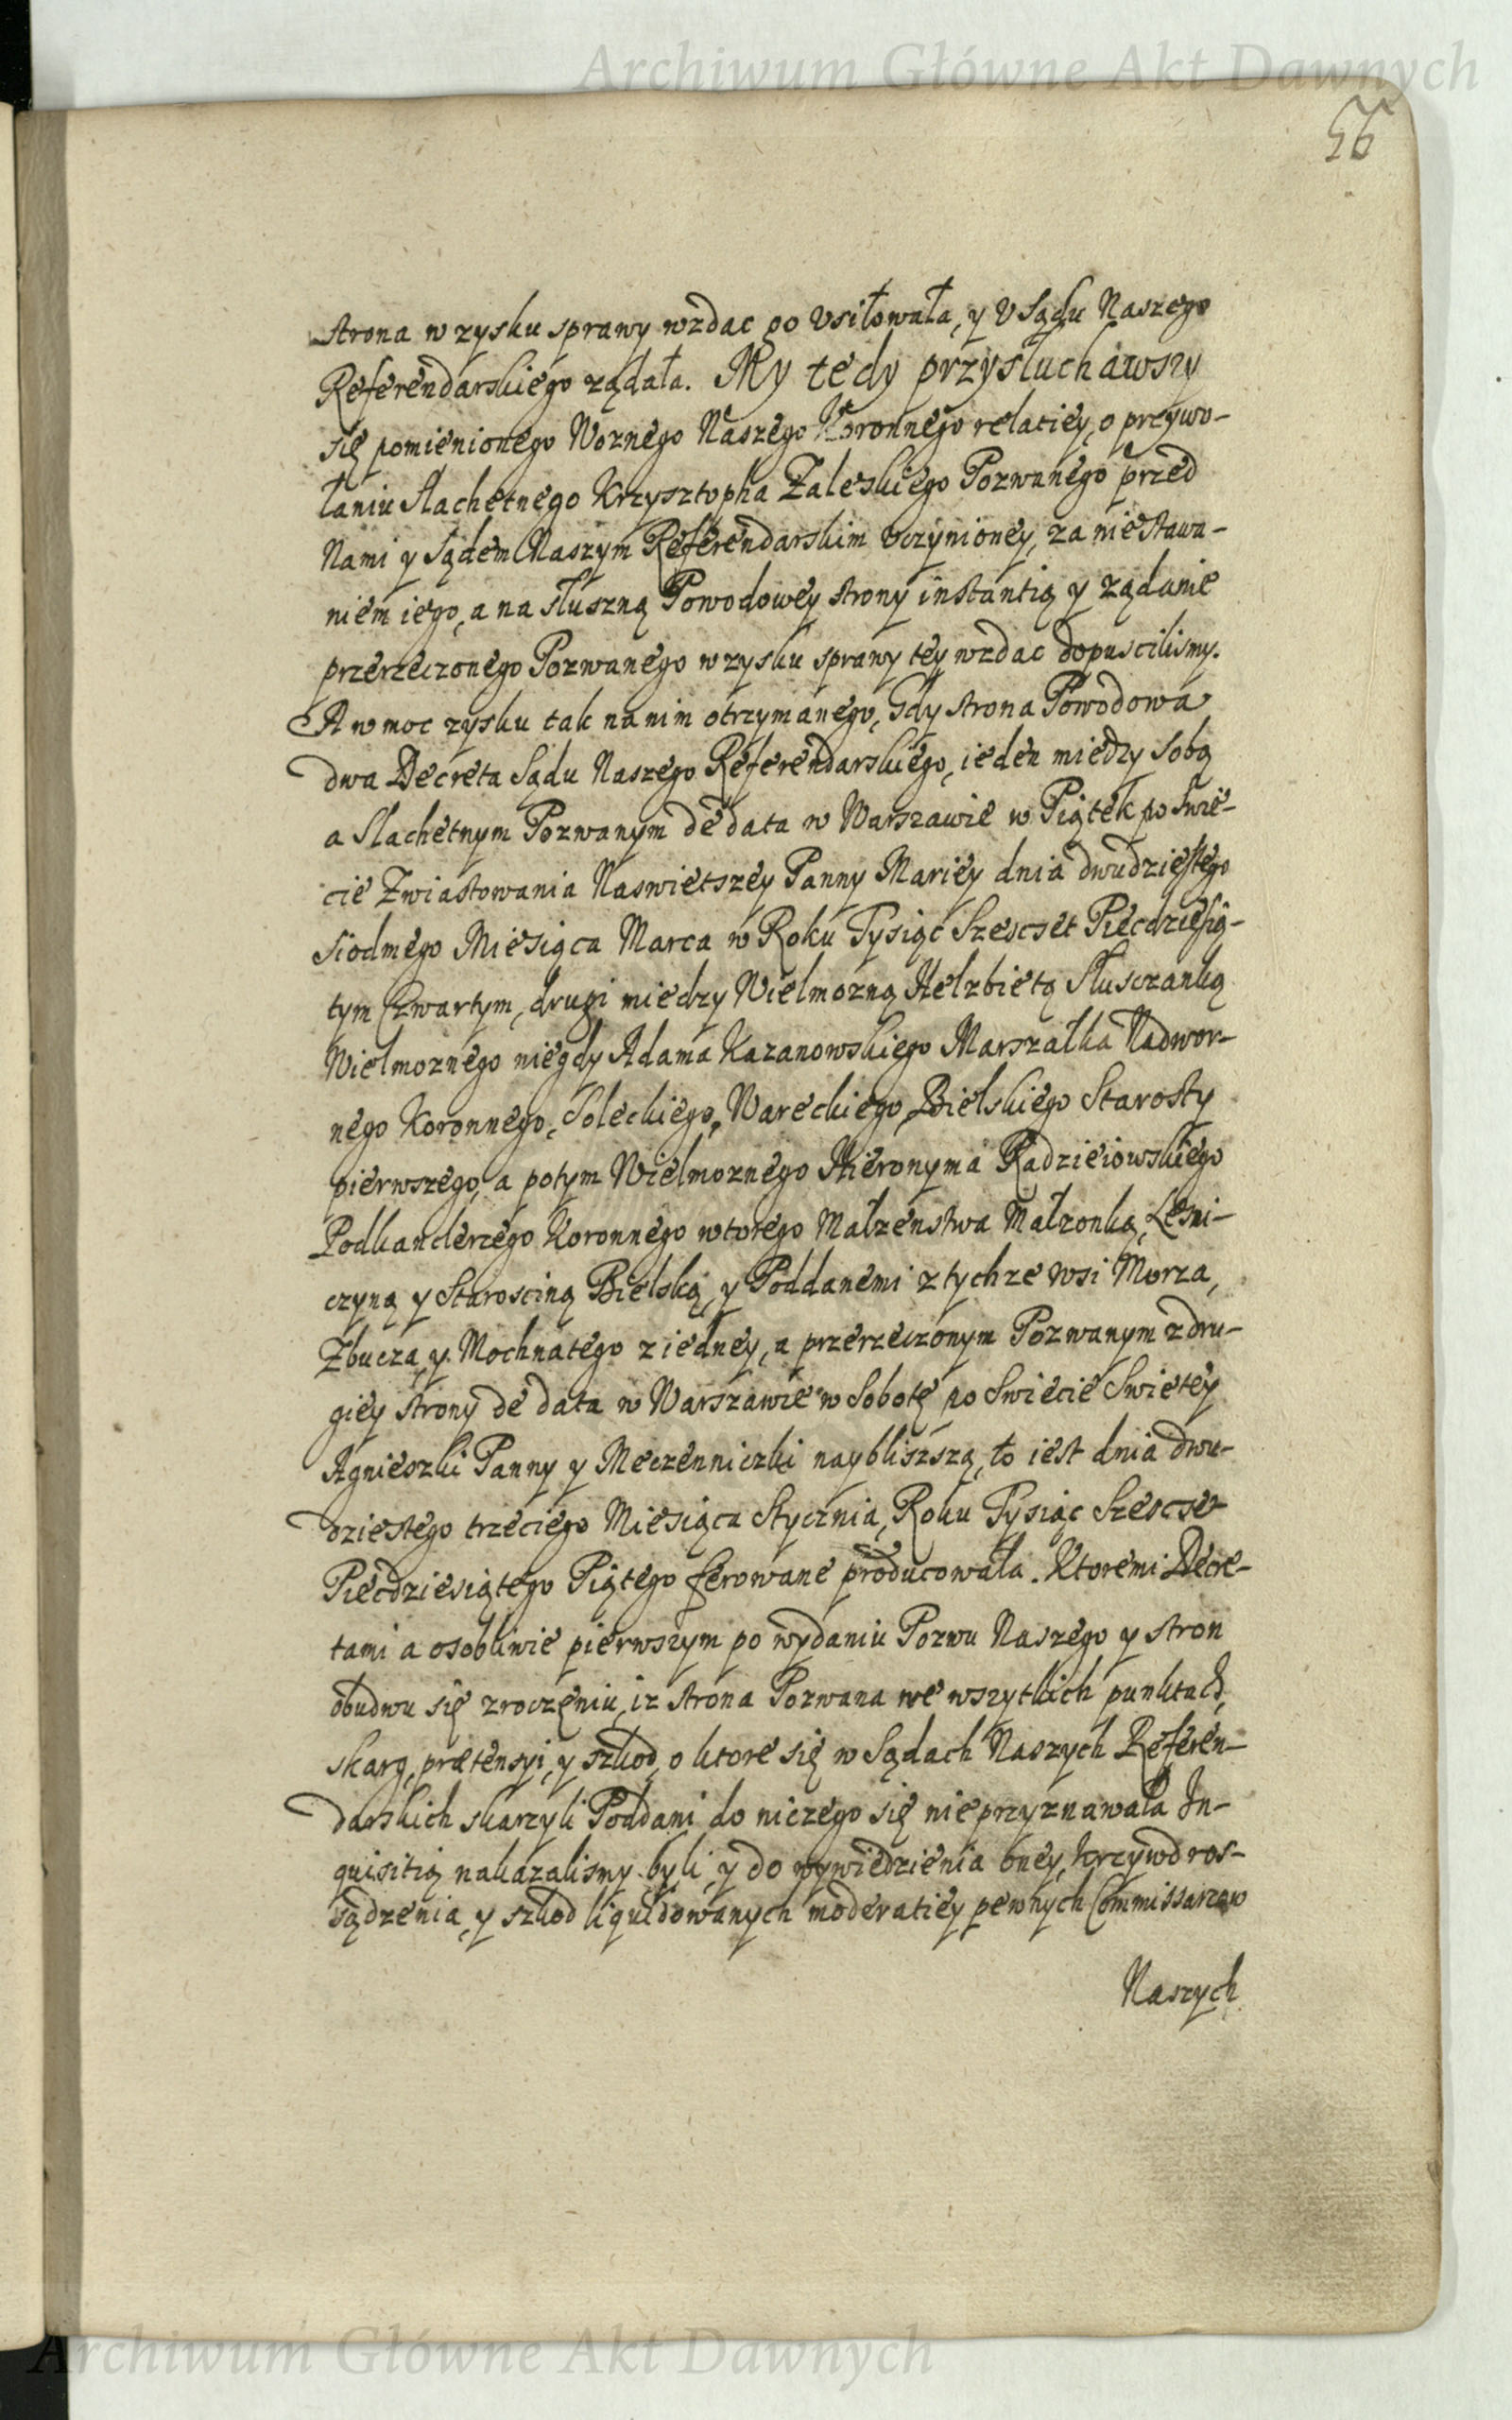 Archiwum Główne Akt Dawnych
56
strona w zysku sprawy wzdac go vsiłowała, y v Sądu Naszego
Referendarskiego ządała. My tedy przysłuchawszy
się pomienionego Woznego Naszego Koronnego relatiey, o przywo-
łaniu Slachetnego Krzysztopha Zaleskiego Pozwanego przed
Nami y Sądem Naszym Referendarskim vczynioney, za niestawa-
niem iego, a na słuszną Powodowey strony instantią y ządanie
przerzeczonego Pozwanego w zysku sprawy tey wzdac dopuscilismy.
A w moc zysku tak na nim otrzymanego, gdy strona Powodowa
dwa Decreta Sądu Naszego Referendarskiego, ieden miedzy sobą
a Slachetnym Pozwanym de data w Warszawie w Piątek po Swie-
cie Zwiastowania Naswietszey Panny Mariey dnia dwudziestego
siodmego Miesiąca Marca w Roku Tysiąc Szescset Piecdziesią-
tym Czwartym, drugi miedzy Wielmozną Helzbietą Słusczanką
Wielmoznego niegdy Adama Kazanowskiego Marszałka Nadwor-
nego Koronnego, Soleckiego, Wareckiego, Bielskiego Starosty
pierwszego, a potym Wielmoznego Hieronyma Radzieiowskiego
Podkanclerzego Koronnego wtorego Małzenstwa Małzonką, Lesni-
czyną y Starosciną Bielską, y Poddanemi z tychze wsi Morza,
Zbucza, y Mochnatego z iedney, a przerzeczonym Pozwanym z dru-
giey strony de data w Warszawie w Sobotę po Swiecie Swietey
Agnieszki Panny y Meczenniczki naybliszszą, to iest dnia dwu-
dziestego trzeciego Miesiąca Stycznia, Roku Tysiąc Szescset
Piecdziesiątego Piątego ferowane producowała. Ktoremi Decre-
tami a osobliwie pierwszym po wydaniu Pozwu Naszego y stron
obudwu się zroczeniu, iz strona Pozwana we wszytkich punktach,
skarg, prætensyi, y szkod, o ktore się w Sądach Naszych Referen-
darskich skarzyli Poddani do niczego się nie przyznawała In-
quisitią nakazalismy byli, y do wywiedzienia oney, krzywd ros-
sądzenia, y szkod liquidowanych moderatiey pewnych Commissarzow
Naszych
Archiwum Główne Akt Dawnych